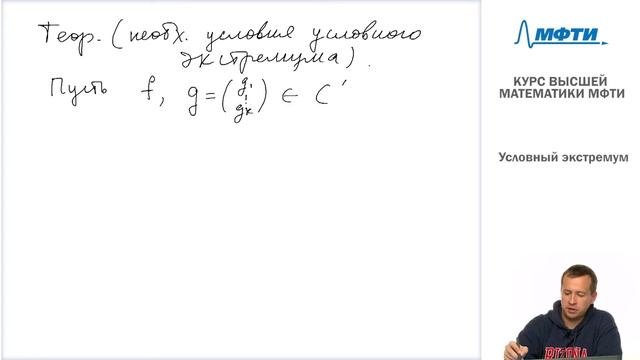 Теор. (необх. условия условного
экстремума).
Пусть f, g = (g₁ ⋮ gₖ) ∈ C¹
МФТИ
КУРС ВЫСШЕЙ
МАТЕМАТИКИ МФТИ
Условный экстремум